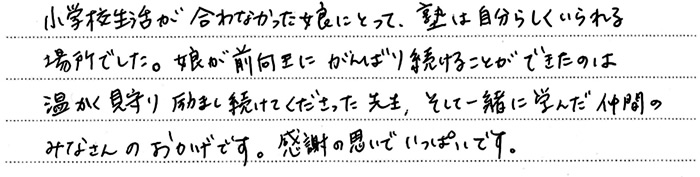 小学校生活が合わなかった娘にとって、塾は自分らしくいられる
場所でした。娘が前向きにがんばり続けることができたのは
温かく見守り励まし続けてくださった先生，そして一緒に学んだ仲間の
みなさんのおかげです。感謝の思いでいっぱいです。